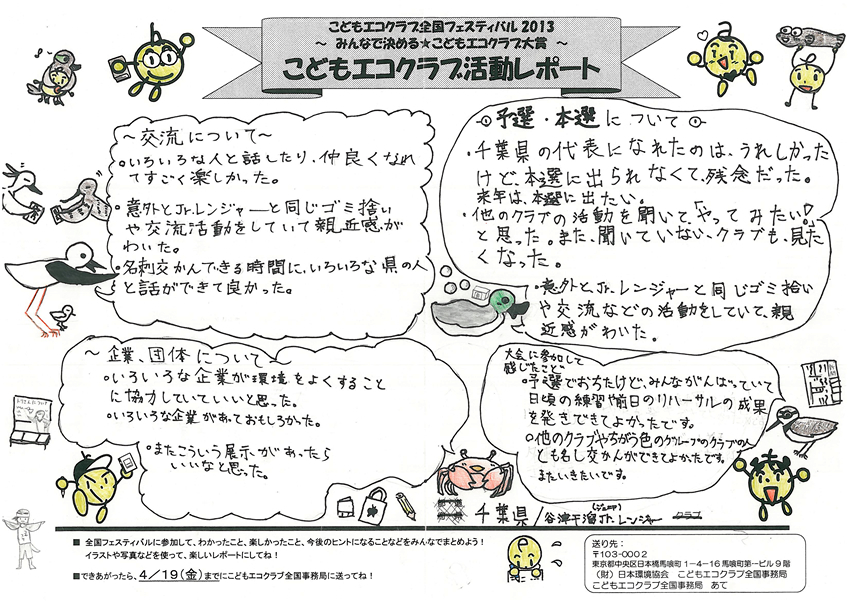 こどもエコクラブ全国フェスティバル 2013
～ みんなで決める★こどもエコクラブ大賞 ～
こどもエコクラブ活動レポート
～交流について～
・いろいろな人と話したり、仲良くなれ
てすごく楽しかった。
・意外とJr.レンジャーと同じゴミ捨い
や交流活動をしていて親近感が
わいた。
・名刺交かんできる時間に、いろいろな県の人
と話ができて良かった。
予選・本選について
・千葉県の代表になれたのは、うれしかった
けど、本選に出られなくて、残念だった。
来年は、本選に出たい。
・他のクラブの活動を聞いて、「やってみたい!」
と思った。また、聞いていない、クラブも、見た
くなった。
・意外と、Jr.レンジャーと同じゴミ拾い
や交流などの活動をしていて、親
近感がわいた。
～企業、団体について～
・いろいろな企業が環境をよくすること
に協力していていいと思った。
・いろいろな企業があっておもしろかった。
・またこういう展示があったら
いいなと思った。
大会に参加して
感じたこと
・予選でおちたけど、みんながんばっていて
日頃の練習や前日のリハーサルの成果
を発きできてよかったです。
・他のクラブやちがう色のグループのクラブの人
とも名し交かんができてよかったです。
またいきたいです。
千葉県／谷津干潟Jr.レンジャー クラブ
(ジュニア)
■ 全国フェスティバルに参加して、わかったこと、楽しかったこと、今後のヒントになることなどをみんなでまとめよう！
イラストや写真などを使って、楽しいレポートにしてね！
■できあがったら、4／19(金)までにこどもエコクラブ全国事務局に送ってね！
送り先：
〒103-0002
東京都中央区日本橋馬喰町1－4－16 馬喰町第一ビル9階
（財）日本環境協会 こどもエコクラブ全国事務局
こどもエコクラブ全国事務局 あて